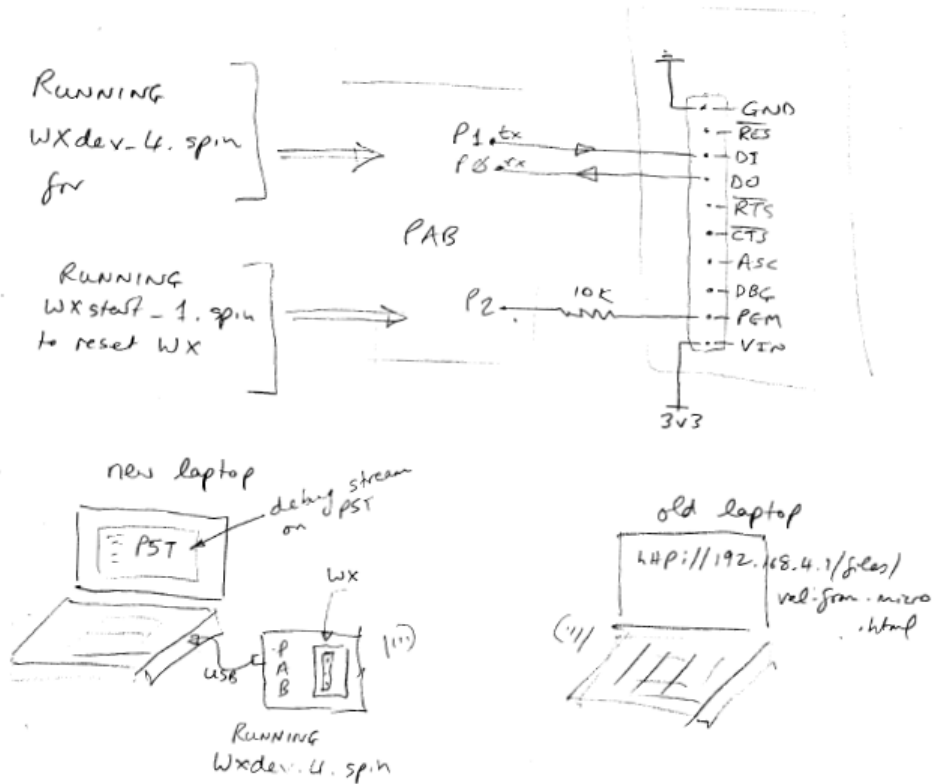 RUNNING
WXdev_4.spin
for
RUNNING
WXstart_1.spin
to reset WX
P1 tx
P0
PAB
P2
10K
GND
RES
DI
DO
RTS
CTS
ASC
DBG
PGM
VIN
3v3
new laptop
debug stream
on PST
PST
USB
WX
P
A
B
RUNNING
Wxdev_4.spin
old laptop
http://192.168.4.1/files/
val-from-micro
.html